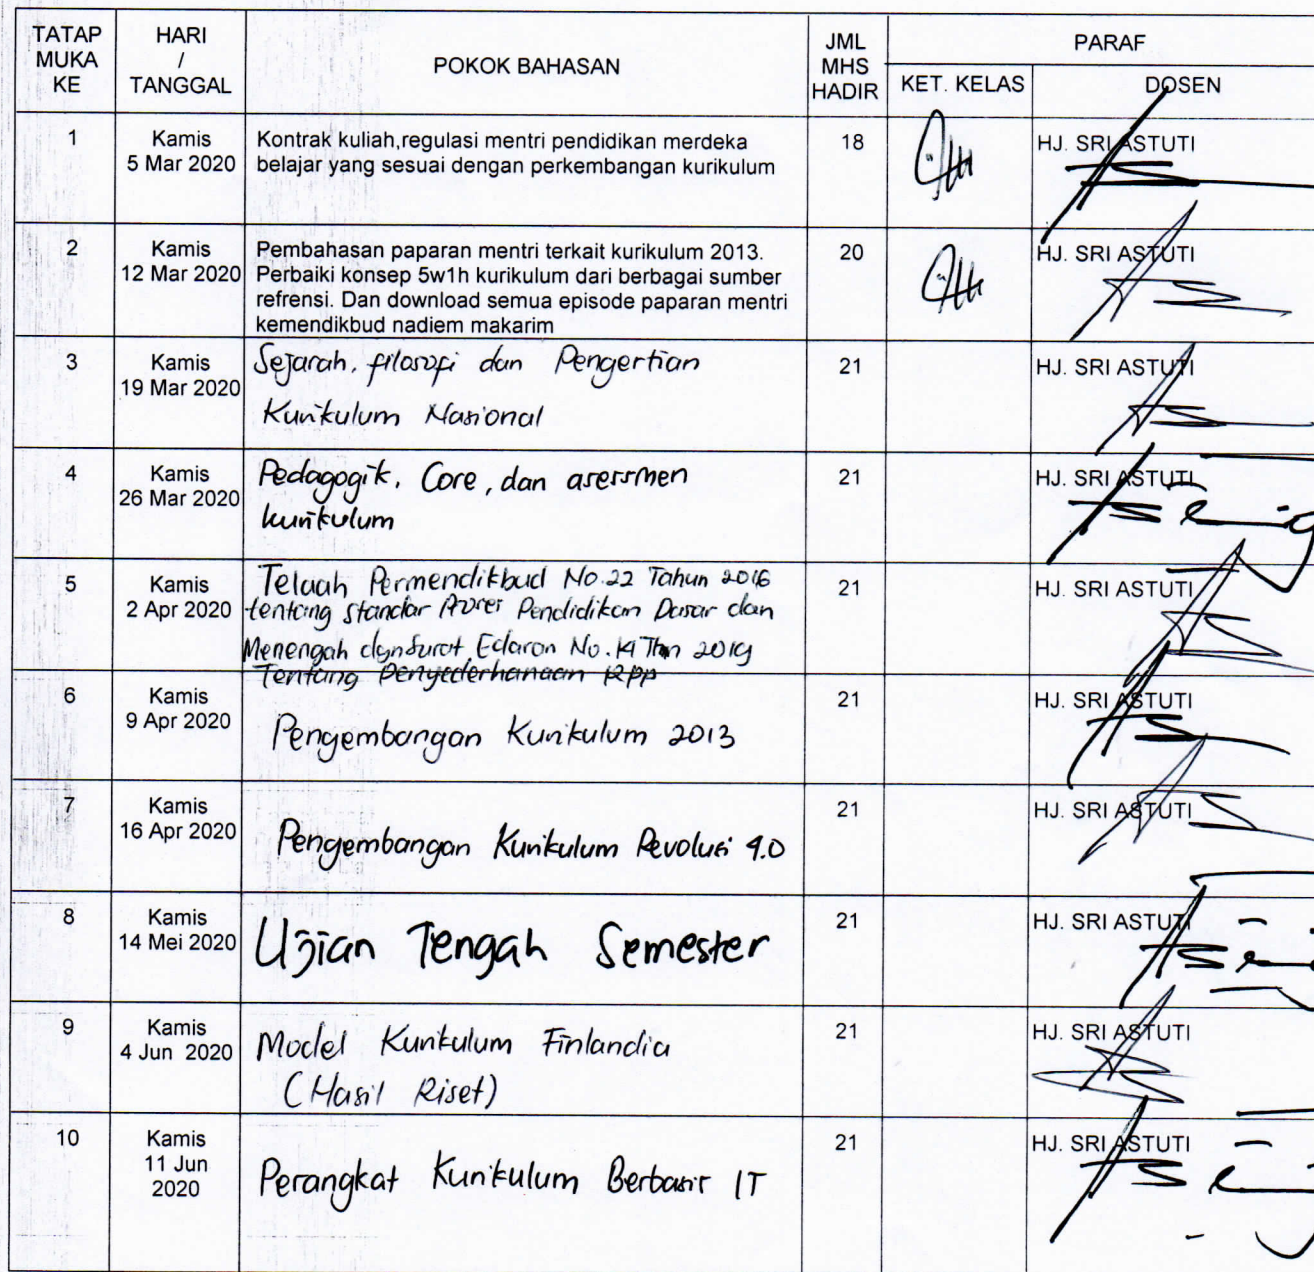 TATAP MUKA KE
HARI / TANGGAL
POKOK BAHASAN
JML MHS HADIR
PARAF
KET. KELAS
DOSEN
1
Kamis
5 Mar 2020
Kontrak kuliah,regulasi mentri pendidikan merdeka
belajar yang sesuai dengan perkembangan kurikulum
18
HJ. SRI ASTUTI
2
Kamis
12 Mar 2020
Pembahasan paparan mentri terkait kurikulum 2013.
Perbaiki konsep 5w1h kurikulum dari berbagai sumber
refrensi. Dan download semua episode paparan mentri
kemendikbud nadiem makarim
20
HJ. SRI ASTUTI
3
Kamis
19 Mar 2020
Sejarah, filosofi dan Pengertian
Kurikulum Nasional
21
HJ. SRI ASTUTI
4
Kamis
26 Mar 2020
Pedagogik, Core, dan asessmen
kurikulum
21
HJ. SRI ASTUTI
5
Kamis
2 Apr 2020
Telaah Permendikbud No.22 Tahun 2016
tentang standar Proses Pendidikan Dasar dan
Menengah dgn Surat Edaran No. 14 Thn 2019
Tentang Penyederhanaan RPP
21
HJ. SRI ASTUTI
6
Kamis
9 Apr 2020
Pengembangan Kurikulum 2013
21
HJ. SRI ASTUTI
7
Kamis
16 Apr 2020
Pengembangan Kurikulum Revolusi 4.0
21
HJ. SRI ASTUTI
8
Kamis
14 Mei 2020
Ujian Tengah Semester
21
HJ. SRI ASTUTI
9
Kamis
4 Jun 2020
Model Kurikulum Finlandia
(Hasil Riset)
21
HJ. SRI ASTUTI
10
Kamis
11 Jun
2020
Perangkat Kurikulum Berbasis IT
21
HJ. SRI ASTUTI